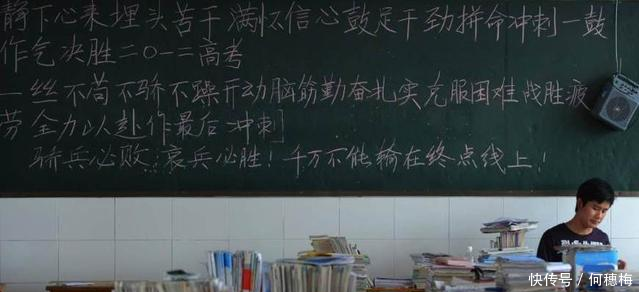 静下心来埋头苦干满怀信心鼓足干劲拼命冲刺一鼓
作气决胜二〇一二高考
一丝不苟不骄不躁开动脑筋勤奋扎实克服困难战胜疲
劳全力以赴作最后冲刺
骄兵必败；哀兵必胜！千万不能输在终点线上！
快传号／何穗梅